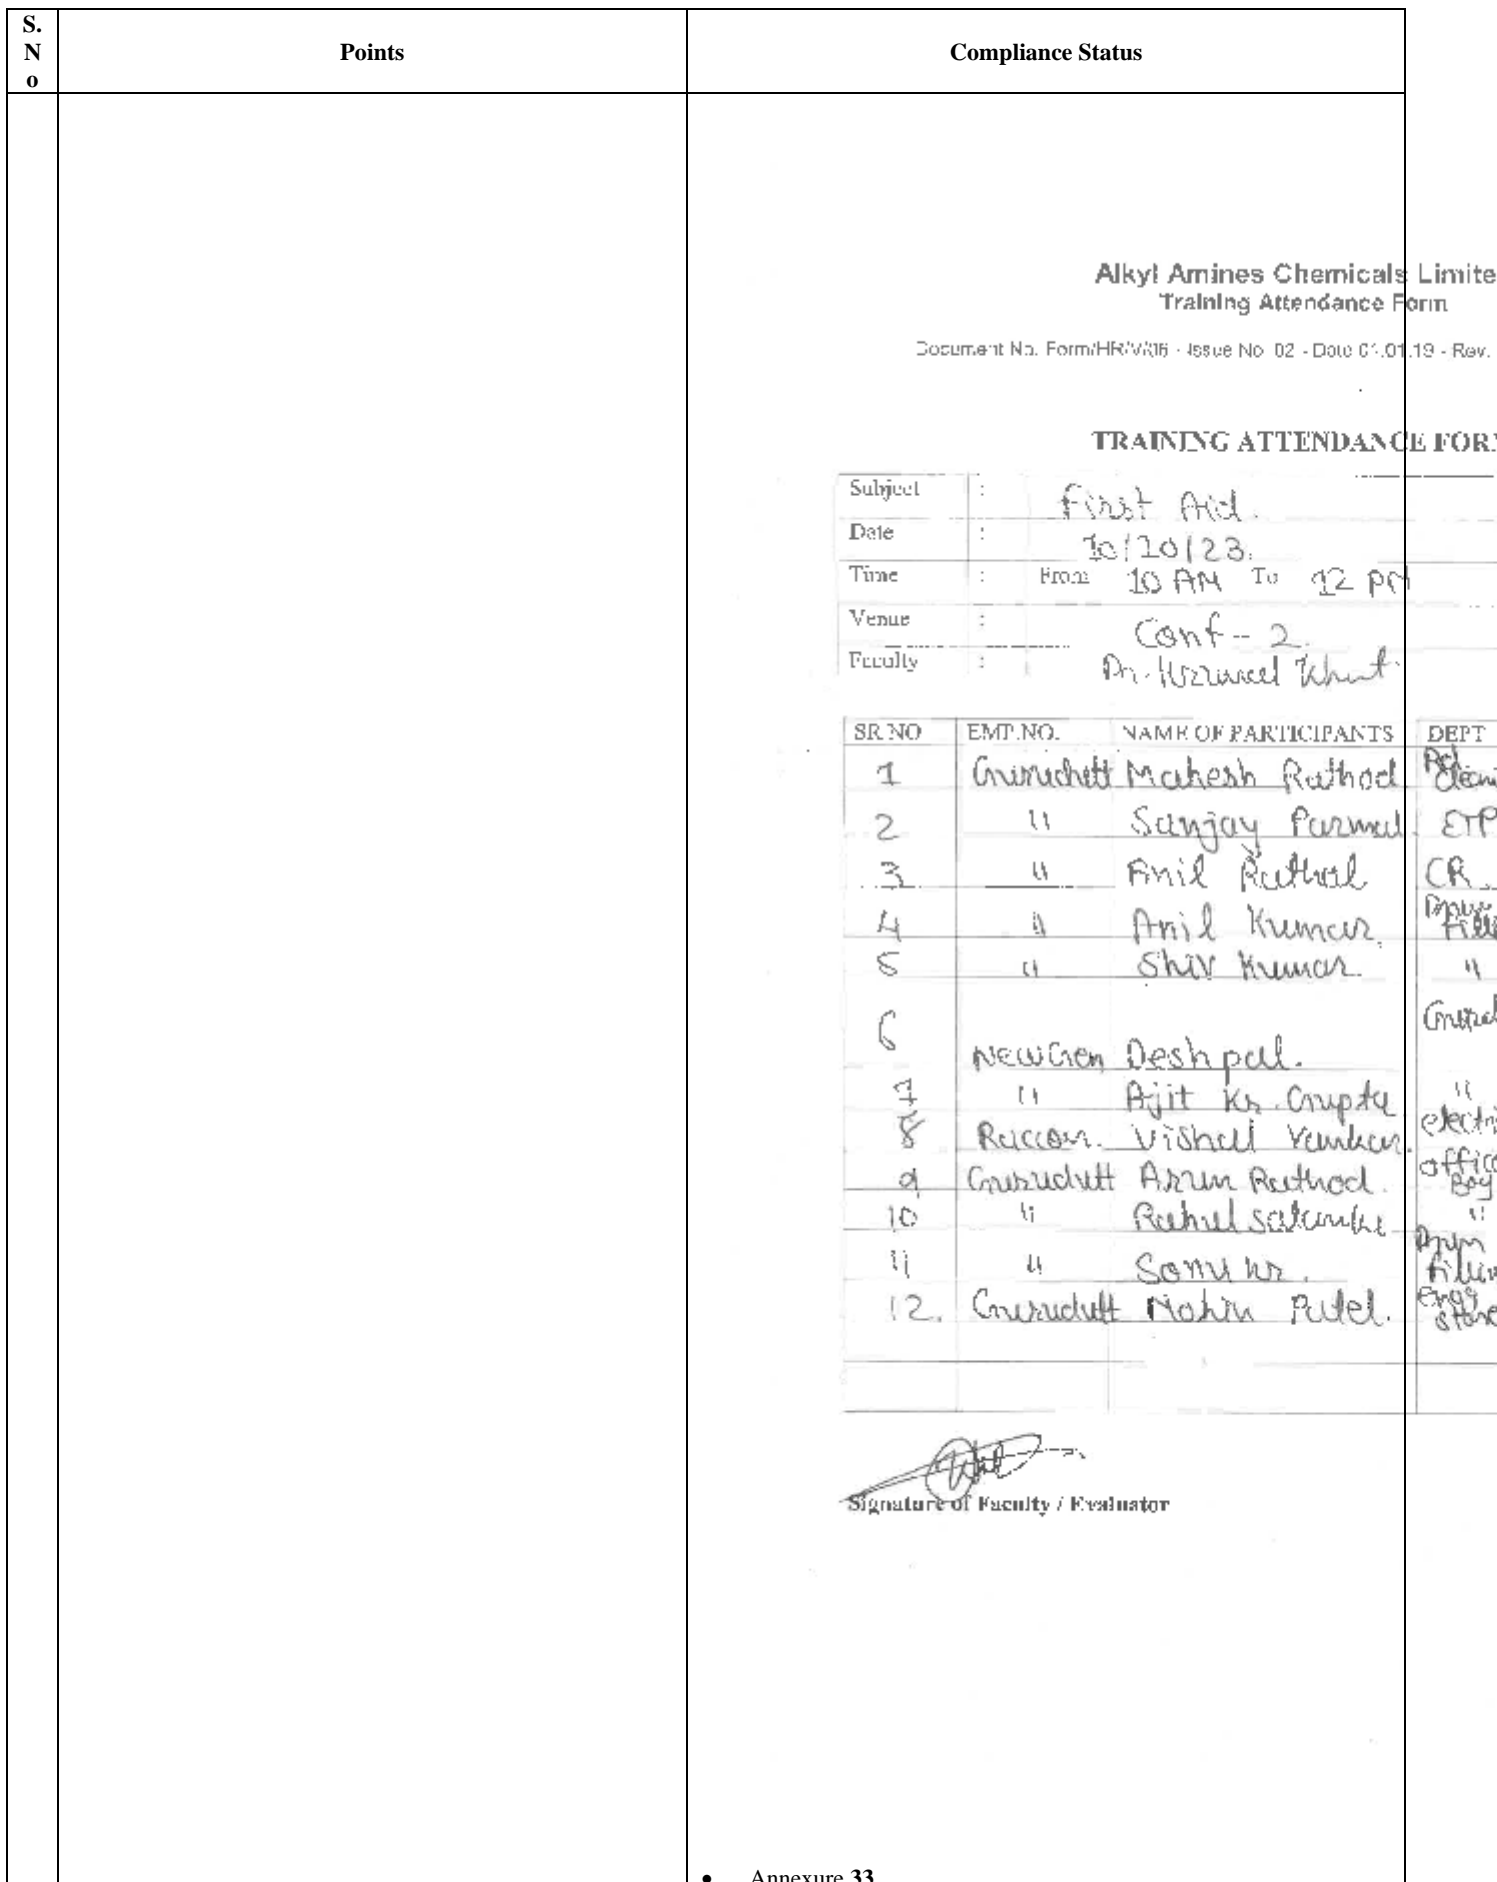 S. No Points Compliance Status
Alkyl Amines Chemicals Limite
Training Attendance Form
Document No. Form/HR/V/06 - Issue No. 02 - Date 01.01.19 - Rev.
TRAINING ATTENDANCE FOR
Subject : First Aid.
Date : 10/10/23.
Time : From 10 AM To 12 PM
Venue : Conf - 2.
Faculty : Dr. Khunt
SR.NO EMP.NO. NAME OF PARTICIPANTS DEPT
1 Gurudutt Mahesh Rathod
2 " Sanjay Parmar ETP
3 " Anil Rathod CR
4 " Anil Kumar. Drum Filli
5 " Shiv Kumar. "
6 NewGen Deshpal.
7 " Ajit Kr. Gupta "
8 Raccon. Vishal Vankar. electri
9 Gurudutt Arun Rathod. office Boy
10 " Rahul "
11 " Sonu kr. Drum fillin
12. Gurudutt Patel. Engg store
Signature of Faculty / Evaluator
• Annexure 33